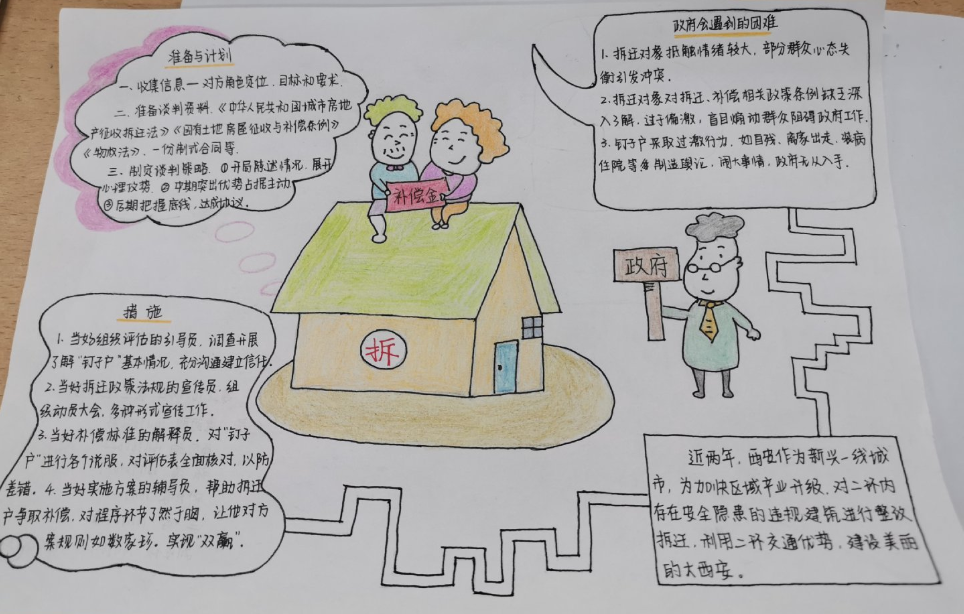 准备与计划
一、收集信息—对方角色定位、目标和需求.
二、准备谈判资料.《中华人民共和国城市房地
产征收拆迁法》《国有土地房屋征收与补偿条例》
《物权法》、一份制式合同等.
三、制定谈判策略. ①开局陈述情况、展开
心理攻势. ②中期突出优势占据主动
③后期把握底线,达成协议.
政府会遇到的困难
1. 拆迁对象抵触情绪较大, 部分群众心态失
衡引发冲突.
2. 拆迁对象对拆迁、补偿相关政策条例缺乏深
入了解. 过于偏激, 盲目煽动群众阻碍政府工作.
3. 钉子户采取过激行为, 如自残、离家出走、装病
住院等来制造舆论, 闹大事情, 政府无从入手.
补偿金
政府
拆
措施
1. 当好组织评估的引导员. 调查开展
了解"钉子户"基本情况, 充分沟通建立信任.
2. 当好拆迁政策法规的宣传员. 组
织动员大会, 多种形式宣传工作.
3. 当好补偿标准的解释员. 对"钉子
户"进行各个说服, 对评估表全面核对, 以防
差错. 4. 当好实施方案的辅导员, 帮助拆迁
户争取补偿, 对程序环节了然于胸, 让他对方
案规则如数家珍. 实现"双赢".
近两年, 西安作为新兴一线城
市, 为加快区域产业升级, 对二环内
存在安全隐患的违规建筑进行整改
拆迁, 利用二环交通优势, 建设美丽
的大西安。